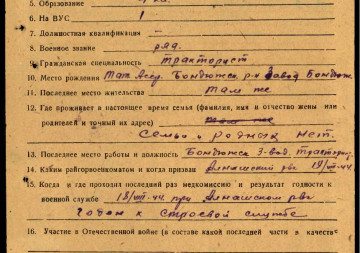 5. Образование 4 кл.
6. На ВУС 1
7. Должностная квалификация —
8. Военное звание ряд.
9. Гражданская специальность тракторист
10. Место рождения Тат. Асср. Бондюжск. р-н Завод Бондюж.
11. Последнее место жительства там же
12. Где проживает в настоящее время семья (фамилия, имя и отчество жены или
родителей и точный их адрес) там же
Семьи и родных нет.
13. Последнее место работы и должность Бондюжск. з-вод. тракторист
14. Каким райгорвоенкоматом и когда призван Алнашский рвк 19/VIII-44
15. Когда и где проходил последний раз медкомиссию и результат годности к
военной службе 18/VIII-44 при Алнашском рвк
годен к строевой службе
16. Участие в Отечественной войне (в составе какой последней части в качеств